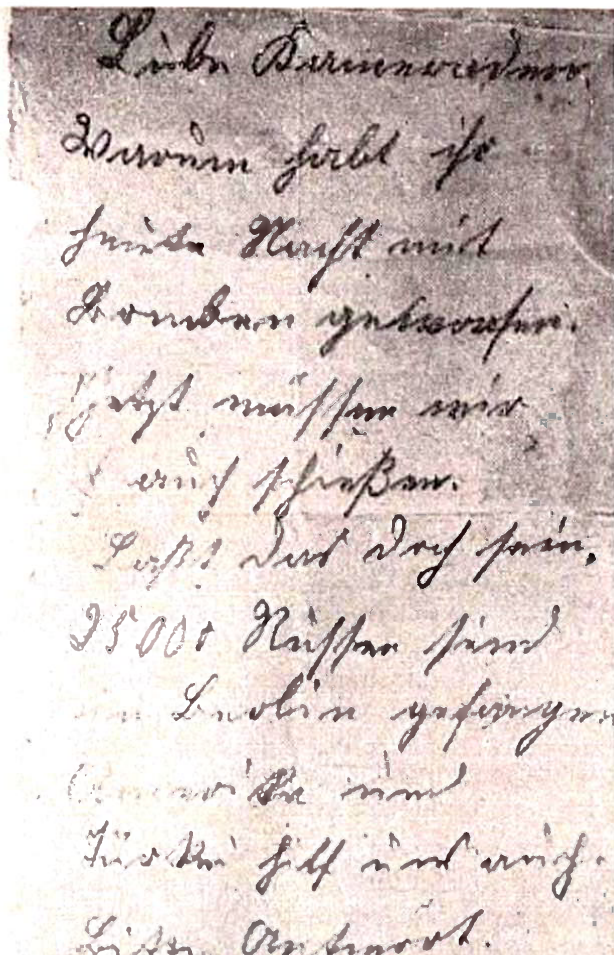 Liebe Kameraden.
Warum habt ihr
heute Nacht mit
Bomben geworfen.
Jetzt müssen wir
auch schießen.
Laßt das doch sein.
25000 Russen sind
in Berlin gefangen
Amerika und
Türkei hilf uns auch.
Bitte Antwort.